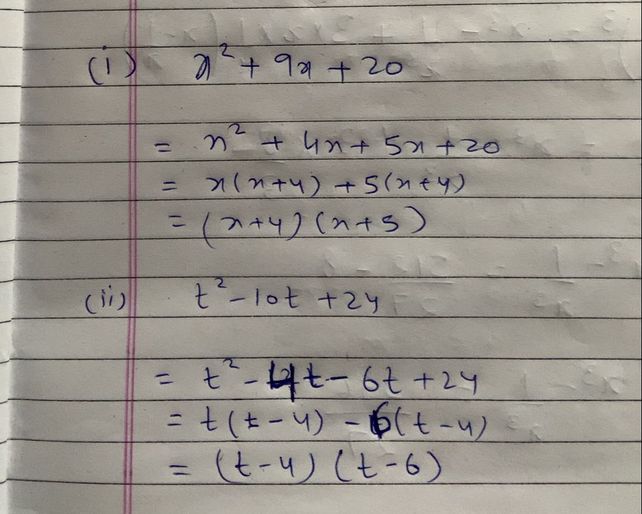 (i) x² + 9x + 20
= x² + 4x + 5x + 20
= x(x+4) + 5(x+4)
= (x+4) (x+5)
(ii) t² - 10t + 24
= t² - 4t - 6t + 24
= t(t-4) - 6(t-4)
= (t-4) (t-6)